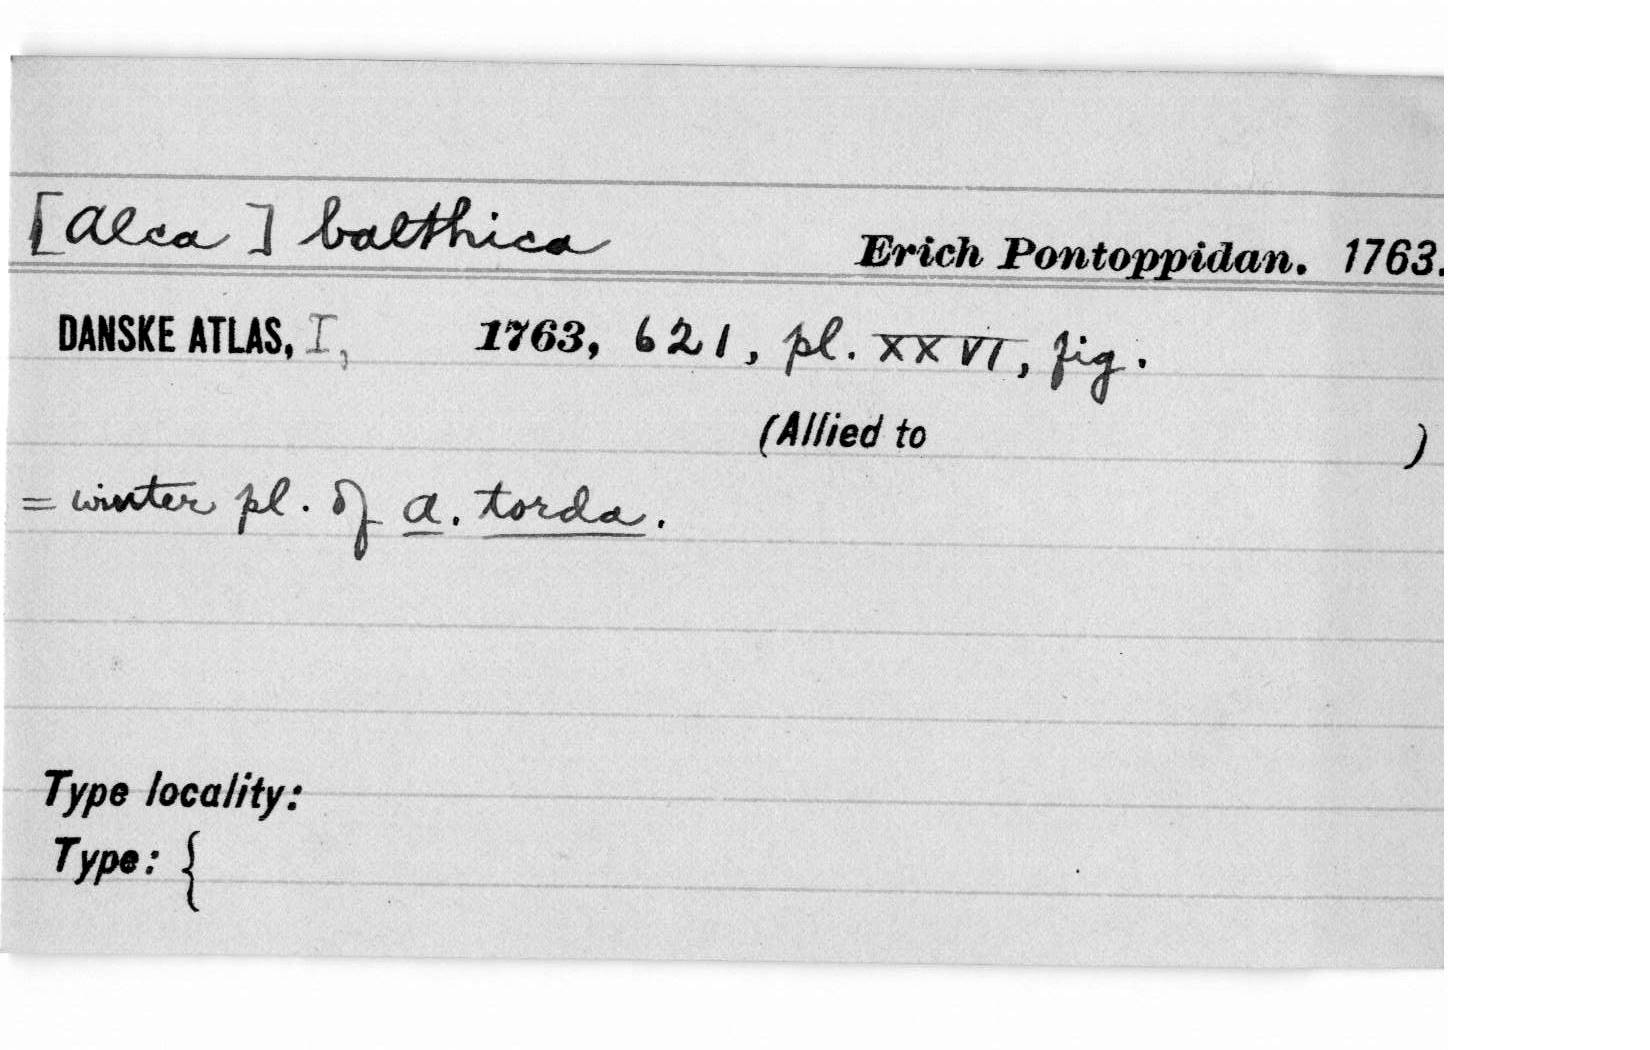 [Alca] balthica Erich Pontoppidan. 1763.
DANSKE ATLAS, I, 1763, 621, pl. XXVI, fig.
(Allied to )
= winter pl. of A. torda.
Type locality:
Type: {